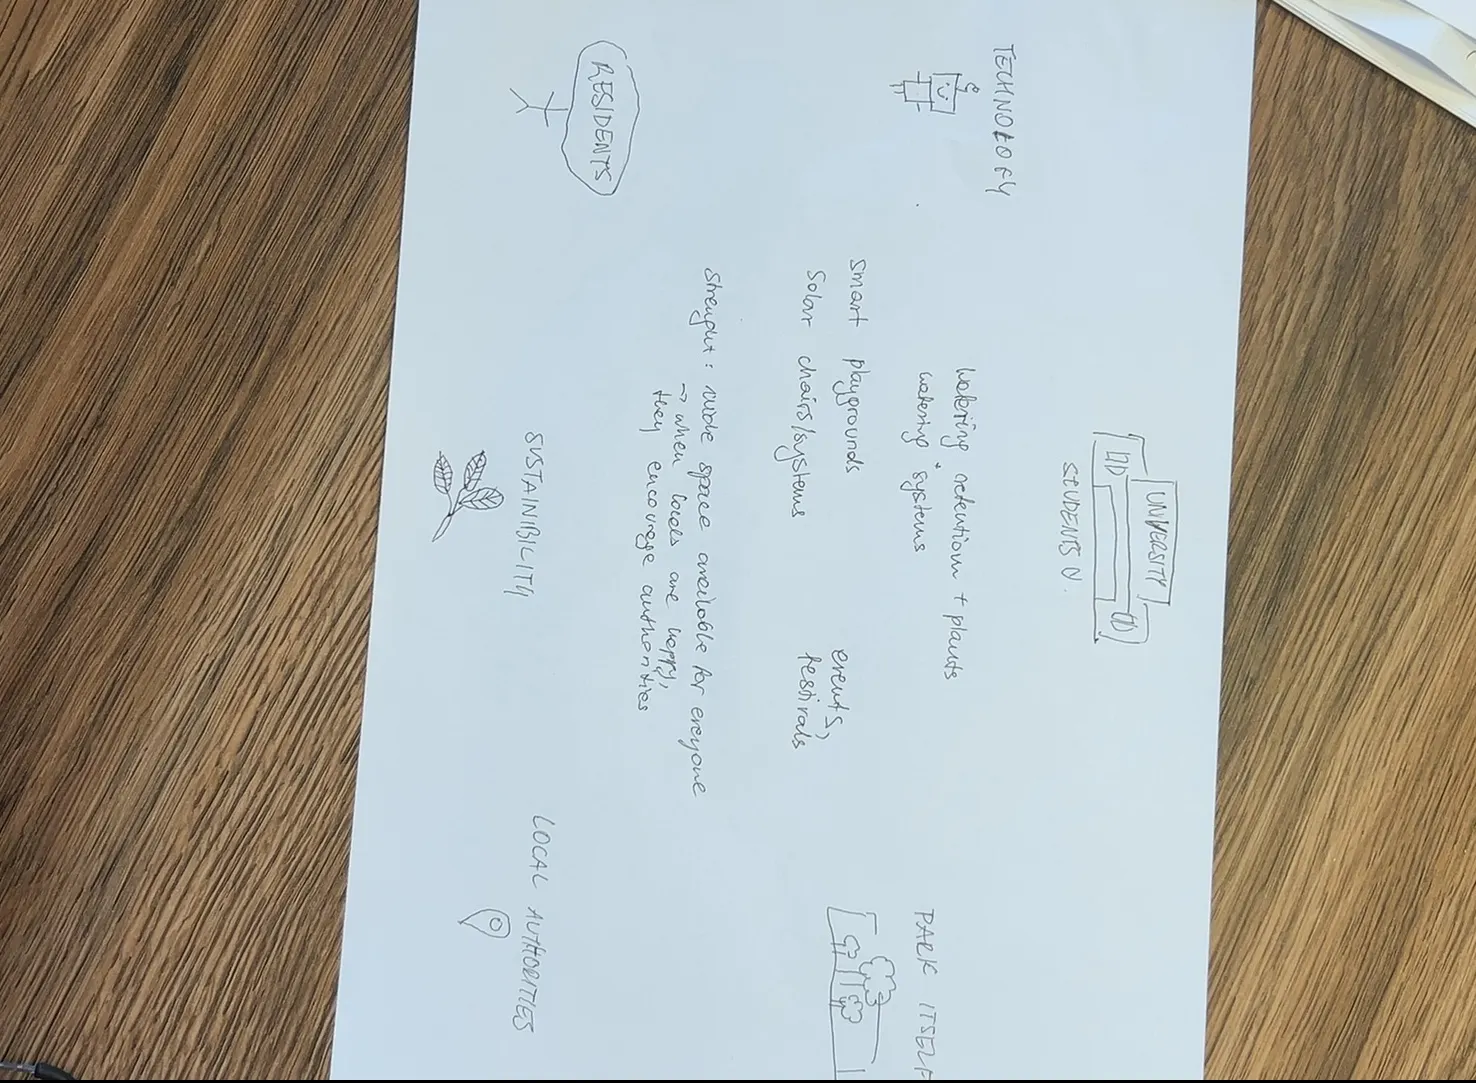 UNIVERSITY
STUDENTS
TECHNOLOGY
watering retention + plants
watering systems
PARK ITSELF
smart playgrounds
solar chairs/systems
events,
festivals
strenght: wide space available for everyone
→ when locals are happy,
they encourage authorities
RESIDENTS
SUSTAINIBILITY
LOCAL AUTHORITIES